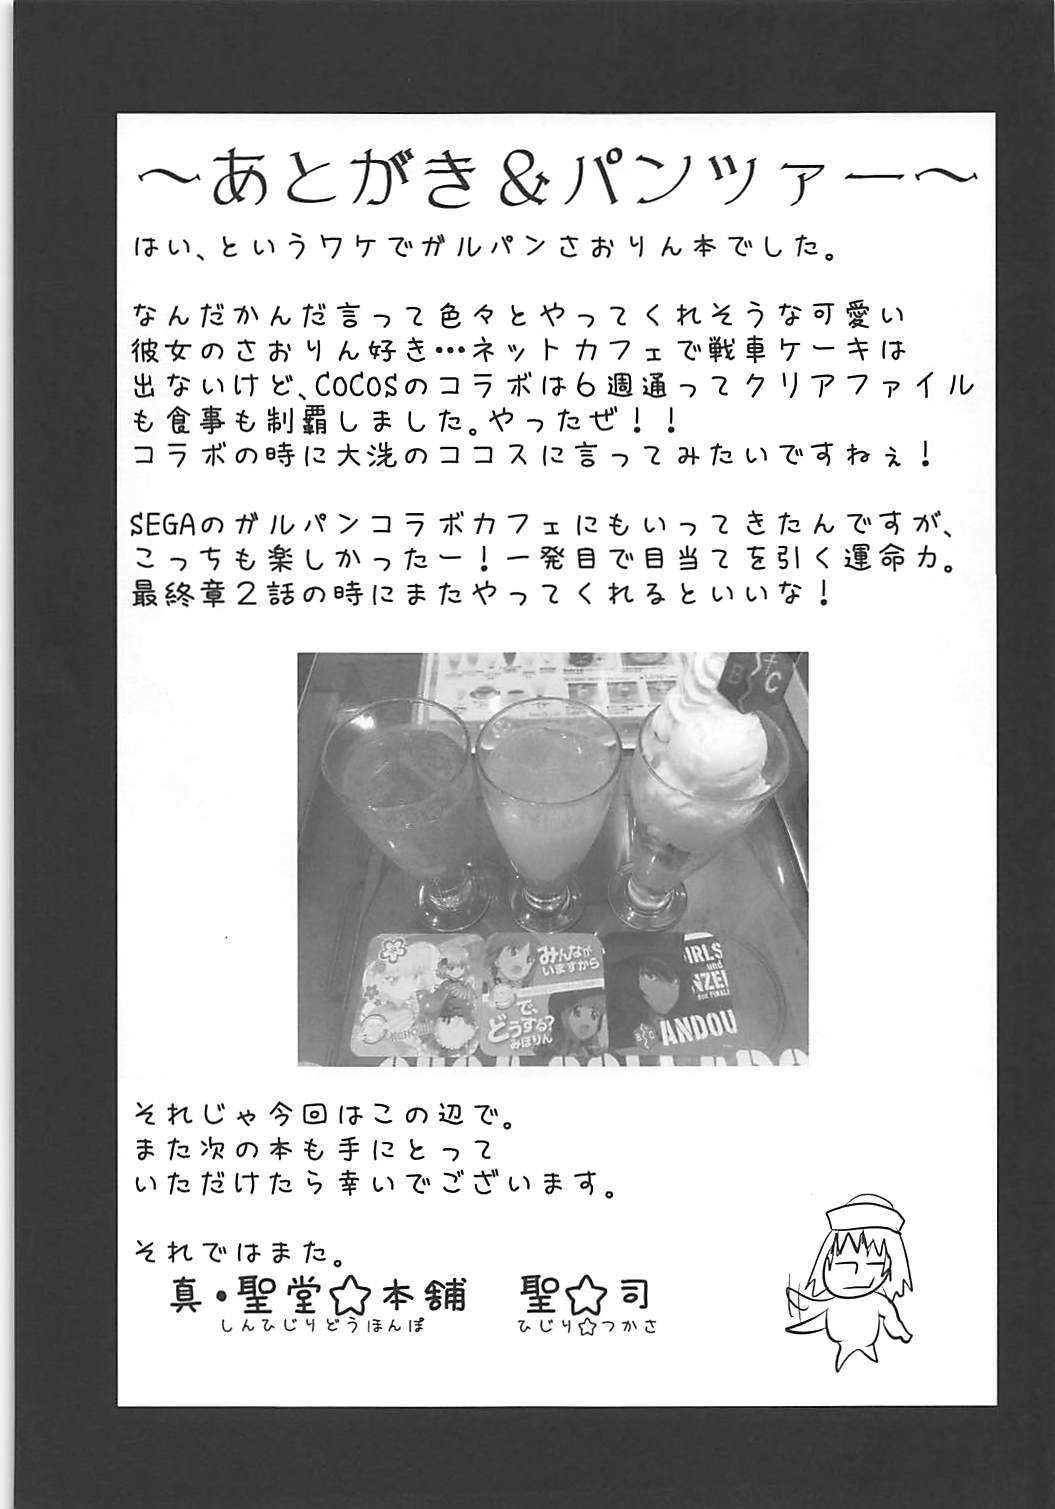 ～あとがき＆パンツァー～
はい、というワケでガルパンさおりん本でした。
なんだかんだ言って色々とやってくれそうな可愛い
彼女のさおりん好き…ネットカフェで戦車ケーキは
出ないけど、COCOSのコラボは６週通ってクリアファイル
も食事も制覇しました。やったぜ！！
コラボの時に大洗のココスに言ってみたいですねぇ！
SEGAのガルパンコラボカフェにもいってきたんですが、
こっちも楽しかったー！一発目で目当てを引く運命力。
最終章２話の時にまたやってくれるといいな！
B C
みんなが
いますから
で、
どうする?
みぽりん
GIRLS
und
PANZER
das FINALE
B C
ANDOU
それじゃ今回はこの辺で。
また次の本も手にとって
いただけたら幸いでございます。
それではまた。
真・聖堂☆本舗　聖☆司
しんひじりどうほんぽ　ひじり☆つかさ